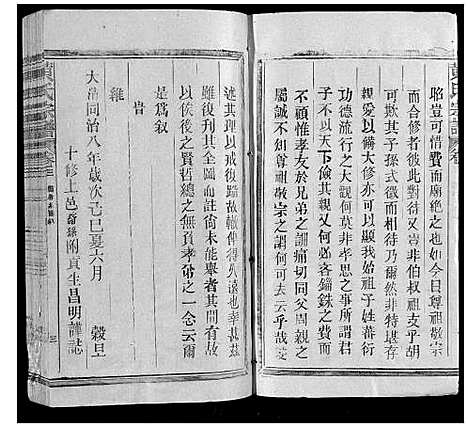 昭豈可惜費而廟絶之也如今日尊祖敬宗
而合修者彼此對待又豈非伯叔祖支乎胡
可欺其子孫式微而相待乃爾然非特堪存
親愛以備大修亦可以顯我始祖子姓蕃衍
功德流行之大觀何莫非孝思之事所謂君
子不以天下儉其親又何必吝錙銖之費哉
誠不知惟孝友于兄弟之謂痛切同父周親之
屬誠不知尊祖敬宗之謂何可去云乎哉茲
述其理以戒後蹈故轍俾得久遠也甚茲
雖復刊其全圖而註尙未能舉者其間有故
以俟後之賢哲總之無負孝弟之一念云爾
是爲叙
大淸同治八年歲次己巳夏六月 穀旦
十修上邑 附貢生昌明謹誌
黃氏宗譜
黃氏宗譜